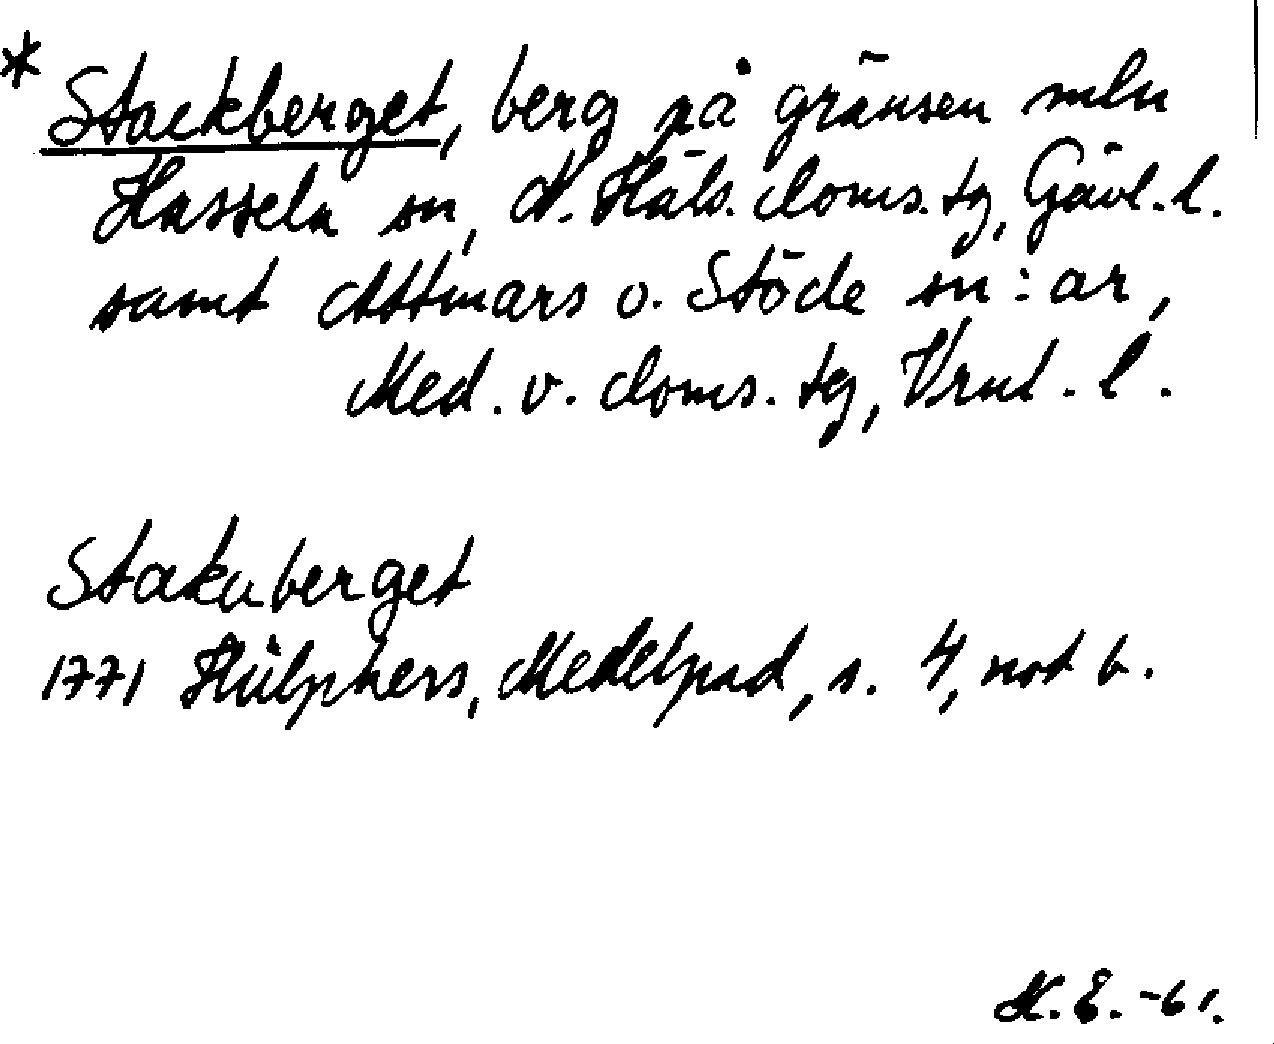 * Stackberget, berg på gränsen mln
Hassela sn, N. Häls. doms. tg, Gävl. l.
samt Attmars o. Stöde sn:ar,
Med. v. doms. tg, Vrnl. l.
Stakaberget
1771 Hülphers, Medelpad, s. 4, not b.
N.E. -61.